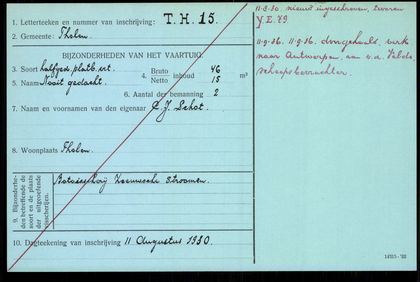 1. Letterteeken en nummer van inschrijving: T.H. 15.
2. Gemeente: Tholen.
BIJZONDERHEDEN VAN HET VAARTUIG.
3. Soort halfged. platb. ert. 4. Bruto Netto inhoud 46 15 m³
5. Naam Nooit gedacht.
6. Aantal der bemanning 2
7. Naam en voornamen van den eigenaar C. J. Schot.
8. Woonplaats Tholen.
9. Bijzonderheden betreffende de soort en de plaats der uitgeoefende visscherijen.
Zeeuwsche Stroomen.
10. Dagteekening van inschrijving 11 Augustus 1930.
nieuw ingeschreven,
YE. 79
11-9-36. doorgehaald, verk
naar Antwerpen, aan v.d.
scheepsbevrachter.